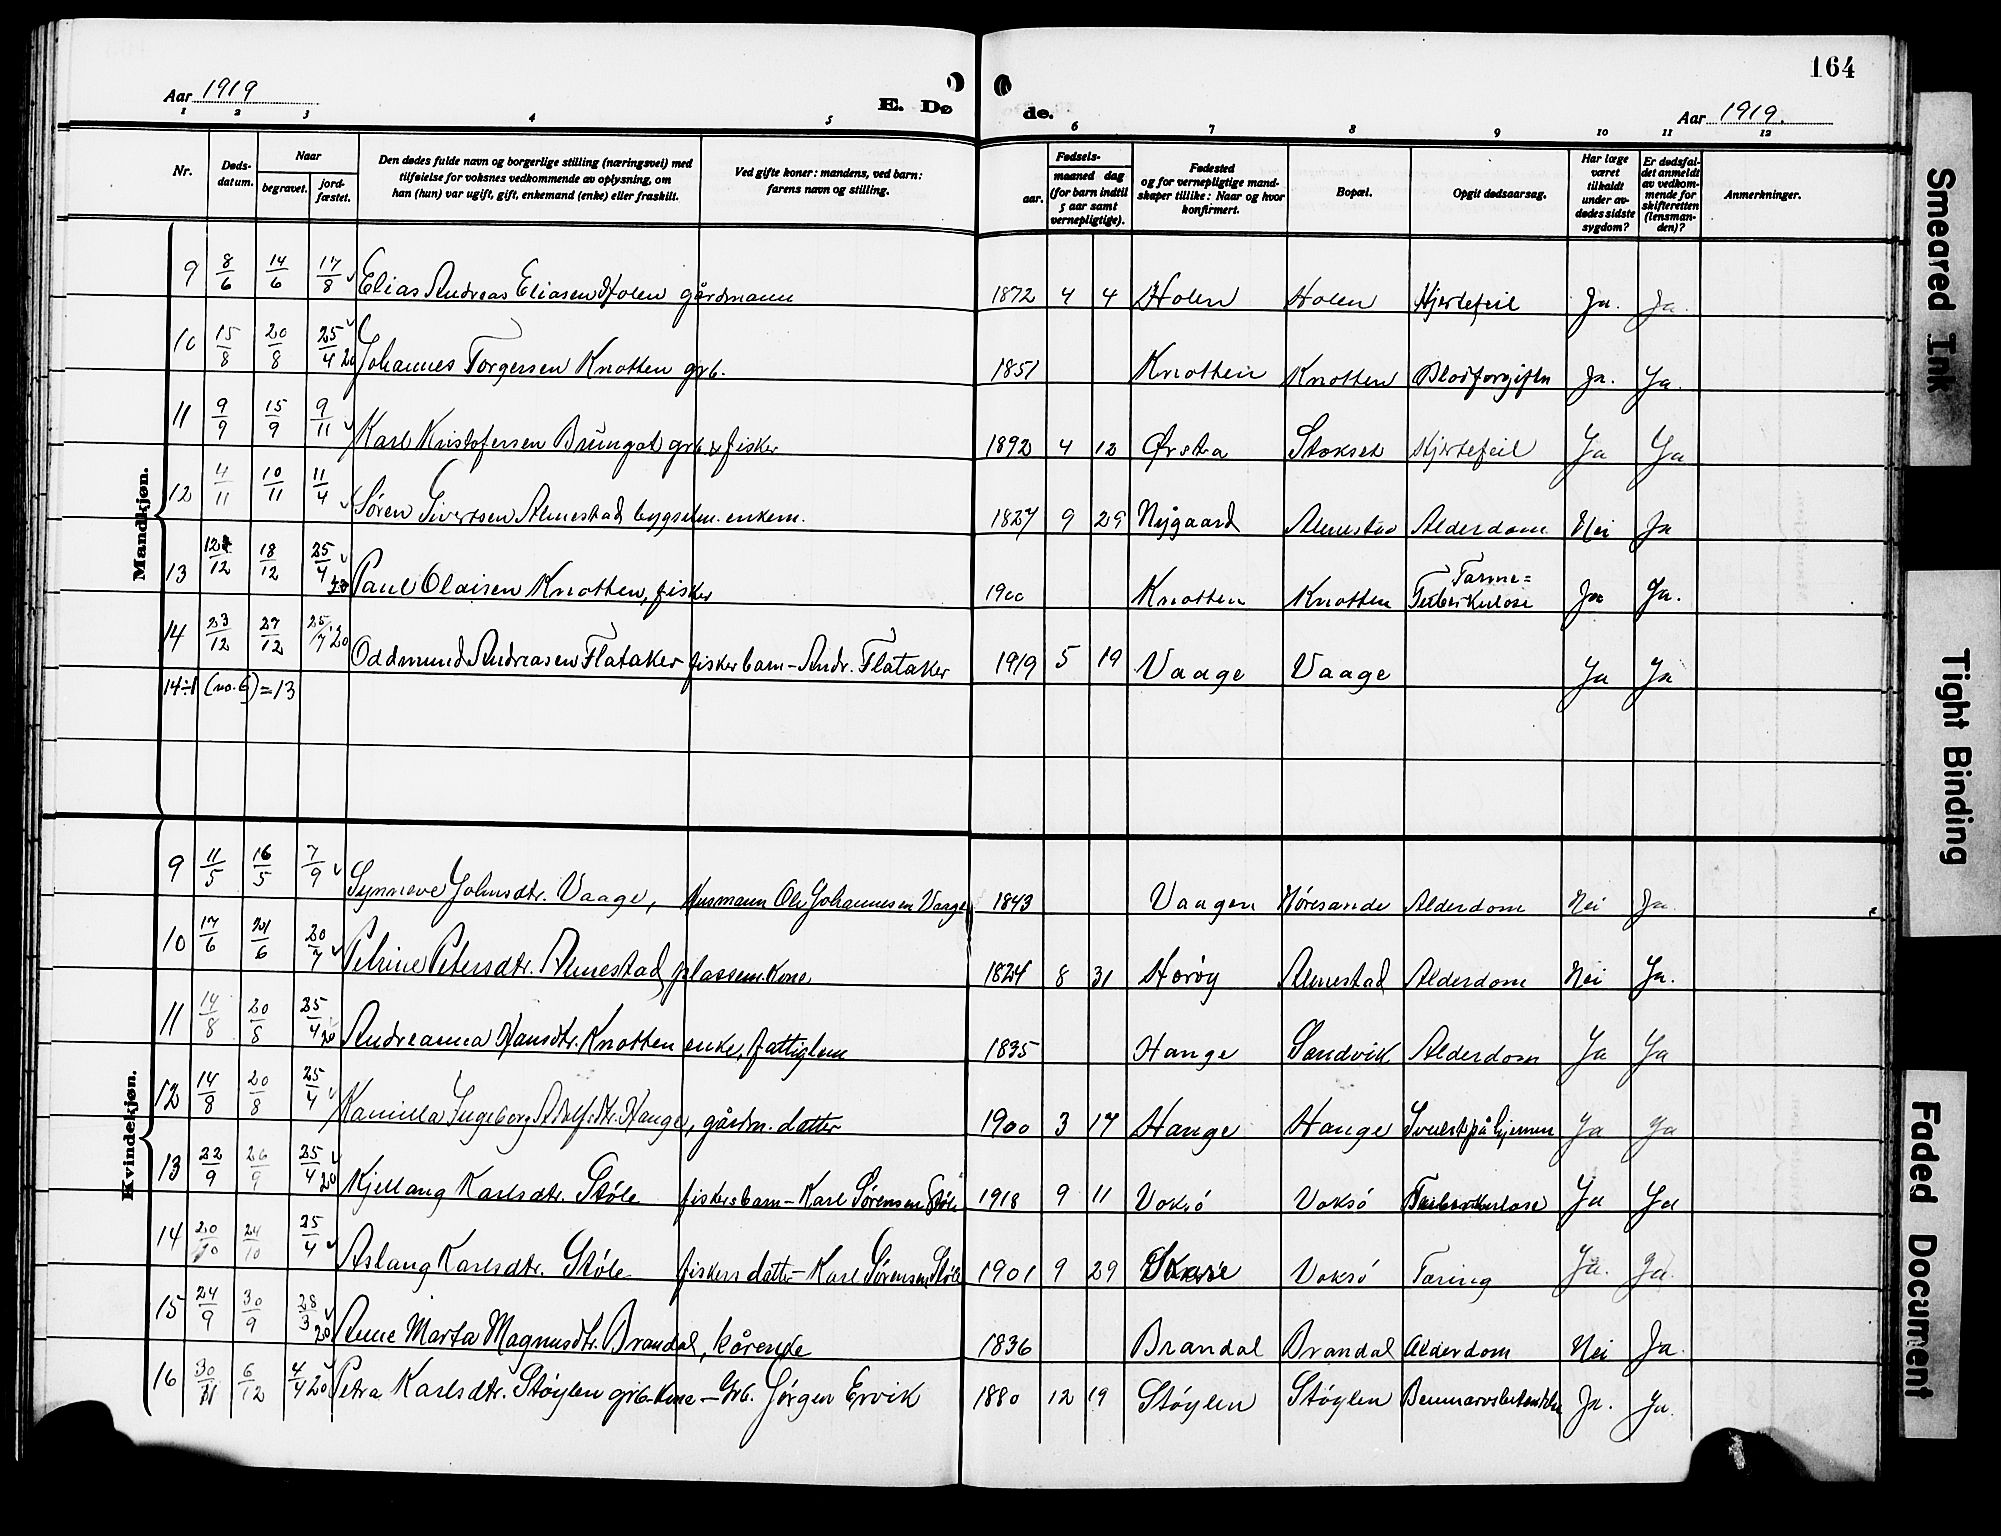 164
Aar 1919
E. Dø
de.
Aar 1919.
1 2 3 4 5 6 7 8 9 10 11 12
Nr.
Døds-
datum.
Naar
begravet.
jord-
fæstet.
Den dødes fulde navn og borgerlige stilling (næringsvei) med
tilføielse for voksnes vedkommende av oplysning, om
han (hun) var ugift, gift, enkemand (enke) eller fraskilt.
Ved gifte koner: mandens, ved barn:
farens navn og stilling.
Fødsels-
aar.
maaned dag
(for barn indtil
5 aar samt
vernepligtige).
Fødested
og for vernepligtige mand-
skaper tillike: Naar og hvor
konfirmert.
Bopæl.
Opgit dødsaarsag.
Har læge
været
tilkaldt
under av-
dødes sidste
sygdom?
Er dødsfal-
det anmeldt
av vedkom-
mende for
skifteretten
(lensman-
den)?
Anmerkninger.
Mandkjøn.
9 8/6 14/6 17/8 Elias Andreas Eliasen Holen gårdmann 1872 4 4 Holen Holen Hjertefeil Ja. Ja.
10 15/8 20/8 25/4 20 Johannes Torgersen Knotten grb. 1851 Knotten Knotten Blodforgiftn Ja. Ja.
11 9/9 15/9 9/11 Karl Kristofersen Brungot grb & fisker 1892 4 12 Ørsta Stokset Hjertefeil Ja Ja
12 4/11 10/11 11/4 Søren Sivertsen Almestad bygselm. enkem. 1827 9 29 Nygaard Almestad Alderdom Nei Ja
13 12/12 18/12 25/4 20 Paul Olaisen Knotten, fisker 1900 Knotten Knotten Tarme=
Tuberkulose Ja Ja.
14 23/12 27/12 25/7 20 Oddmund Andreasen Flataker fiskerbarn – Andr. Flataker 1919 5 19 Vaage Vaage Ja Ja
14÷1 (no. 6) = 13
Kvindekjøn.
9 11/5 16/5 7/9 Synneve Johnsdtr. Vaage, Husmann Ole Johannesen Vaage 1843 Vaagen Høresande Alderdom Nei Ja.
10 17/6 21/6 20/7 Petrine Petersdtr. Almestad, plassem. kone 1824 8 31 Herøy Almestad Alderdom Nei Ja.
11 14/8 20/8 25/4 20 Andreanna Hansdtr. Knotten enke, fattiglem 1835 Hauge Sandvik Alderdom Ja Ja
12 14/8 20/8 25/4 Kamilla Ingeborg Adolfsdtr. Hauge, gårdm. datter 1900 3 17 Hauge Hauge Svulst på hjernen Ja Ja
13 22/9 26/9 25/4 20 Kjellaug Karlsdtr. Støle fiskerbarn – Karl Sørensen Støle 1918 9 11 Voksø Voksø Tuberkulose Ja Ja
14 20/10 24/10 25/4 Aslaug Karlsdtr. Støle fiskers datter – Karl Sørensen Støle 1901 9 29 Voksø Tæring Ja. Ja.
15 24/9 30/9 28/3 20 Anne Marta Magnusdtr. Brandal, kårende 1836 Brandal Brandal Alderdom Nei Ja.
16 30/11 6/12 4/4 20 Petra Karlsdtr. Støylen grb. kone – Grb. Jørgen Ervik 1880 12 19 Støylen Støylen Ja. Ja.
Smeared Ink
Tight Binding
Faded Document